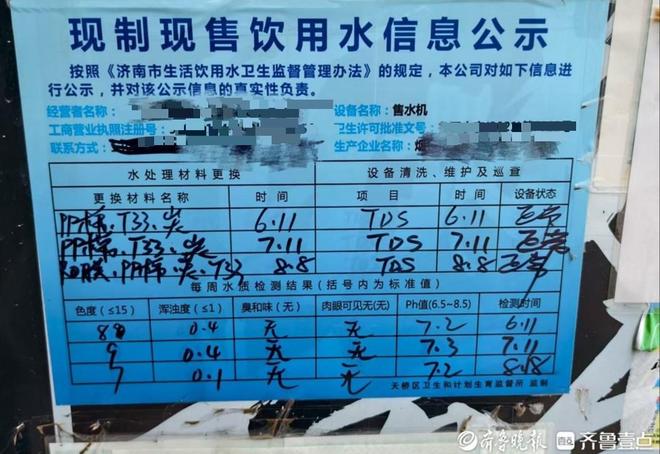 现制现售饮用水信息公示
按照《济南市生活饮用水卫生监督管理办法》的规定，本公司对如下信息进
行公示，并对该公示信息的真实性负责。
经营者名称： 设备名称：售水机
工商营业执照注册号 卫生许可批准文号
联系方式： 生产企业名称：
水处理材料更换 设备清洗、维护及巡查
更换材料名称 时间 项目 时间 设备状态
PP棉、T33、炭 6.11 TDS 6.11 正常
PP棉、T33、炭 7.11 TDS 7.11 正常
PP棉 炭、T33 8.8 TDS 8.8 正常
每周水质检测结果（括号内为标准值）
色度（≤15） 浑浊度（≤1） 臭和味（无） 肉眼可见无(无) Ph值(6.5~8.5) 检测时间
0.4 无 无 7.2 6.11
9 0.4 无 无 7.3 7.11
7 0.1 无 无 7.2 8.8
天桥区卫生和计划生育监督所 监制
齐鲁晚报 齐鲁壹点